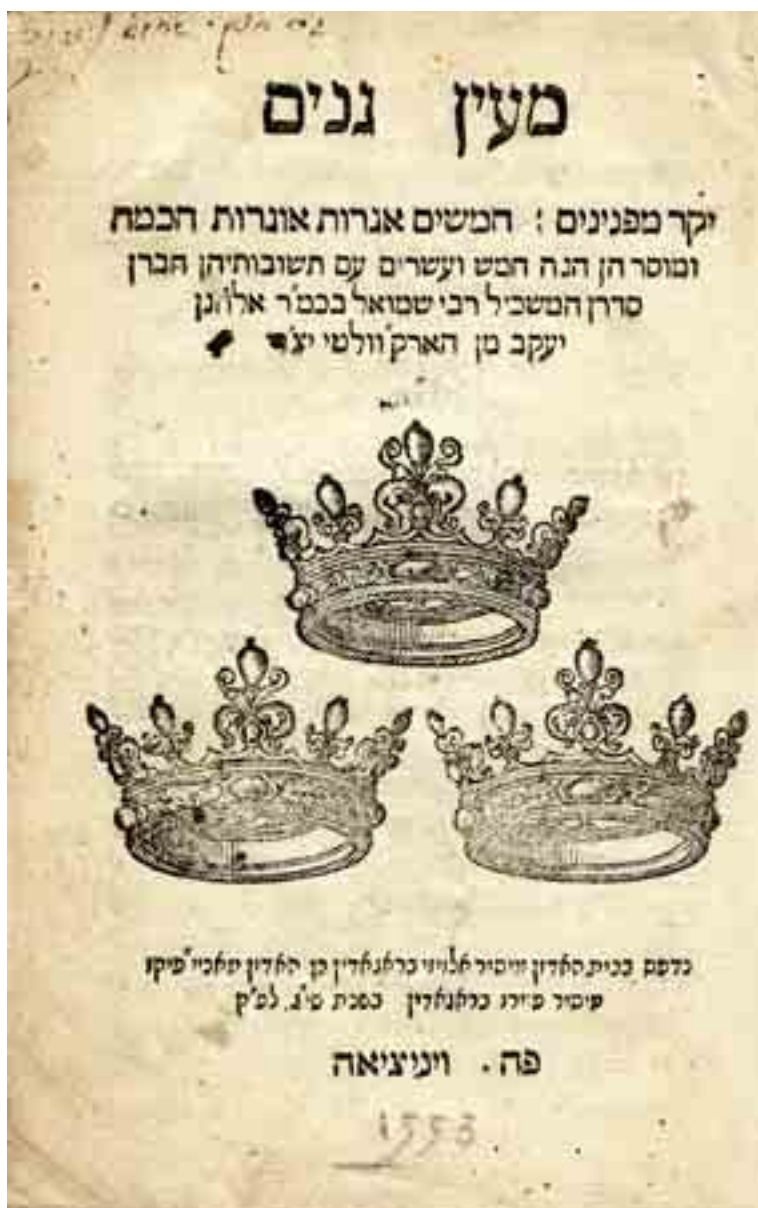 מעין גנים
יקר מפנינים : חמשים אגרות אוגרות חכמה
ומוסר הן הנה חמש ועשרים עם תשובותיהן חברן
סדרן המשכיל רבי שמואל בכמ'ר אלחנן
יעקב מן הארק'וולטי יצ'ו
נדפס בבית האדון מיסיר אלויזי בראגאדין בן האדון מאניי'פיקו
מיסיר פיירו בראגאדין בשנת שי'ג לפ'ק
פה . ויניציאה
1553